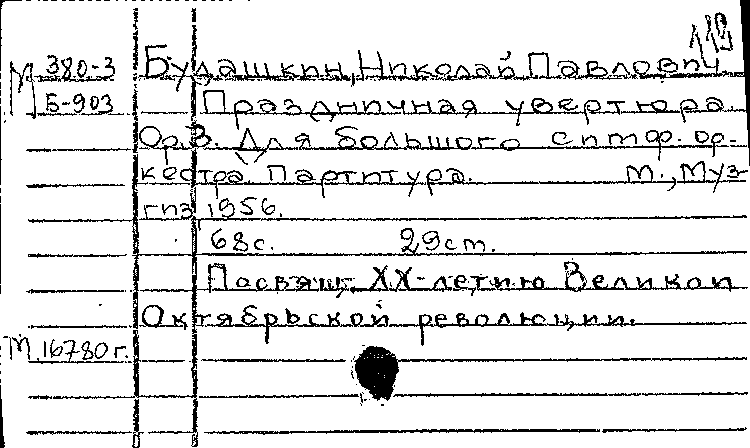 119
М 380-3 Будашкин, Николай Павлович.
Б-903 Праздничная увертюра.
Op. 3. Для большого симф. ор-
кестра. Партитура. М., Муз-
гиз, 1956.
68с. 29см.
Посвящ. ХХ-летию Великой
Октябрьской революции.
М.16780г.